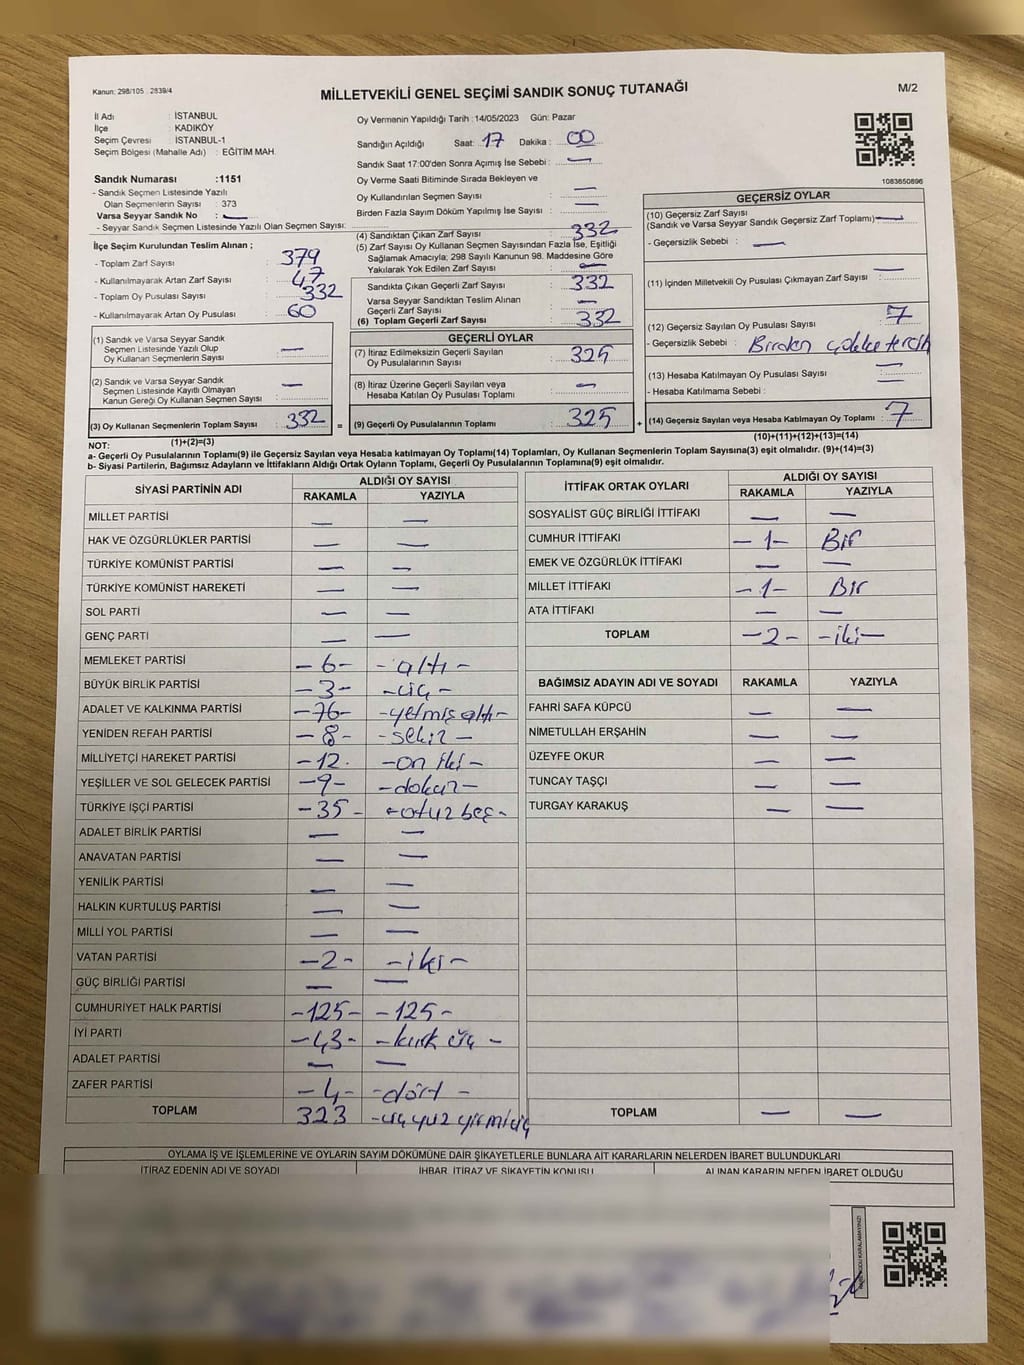 Kanun: 298/105 . 2839/4
MİLLETVEKİLİ GENEL SEÇİMİ SANDIK SONUÇ TUTANAĞI
M/2
İl Adı : İSTANBUL
İlçe : KADIKÖY
Seçim Çevresi : İSTANBUL-1
Seçim Bölgesi (Mahalle Adı) : EĞİTİM MAH.
Sandık Numarası :1151
- Sandık Seçmen Listesinde Yazılı
Olan Seçmenlerin Sayısı : 373
Varsa Seyyar Sandık No : —
- Seyyar Sandık Seçmen Listesinde Yazılı Olan Seçmen Sayısı:
İlçe Seçim Kurulundan Teslim Alınan ;
- Toplam Zarf Sayısı : 379
- Kullanılmayarak Artan Zarf Sayısı : 47
- Toplam Oy Pusulası Sayısı : 332
- Kullanılmayarak Artan Oy Pusulası : 60
(1) Sandık ve Varsa Seyyar Sandık
Seçmen Listesinde Yazılı Olup
Oy Kullanan Seçmenlerin Sayısı : —
(2) Sandık ve Varsa Seyyar Sandık
Seçmen Listesinde Kayıtlı Olmayan
Kanun Gereği Oy Kullanan Seçmen Sayısı : —
(3) Oy Kullanan Seçmenlerin Toplam Sayısı : 332
(1)+(2)=(3)
Oy Vermenin Yapıldığı Tarih :14/05/2023 Gün: Pazar
Sandığın Açıldığı Saat: 17 Dakika : 00
Sandık Saat 17:00'den Sonra Açımış İse Sebebi : —
Oy Verme Saati Bitiminde Sırada Bekleyen ve
Oy Kullandırılan Seçmen Sayısı : —
Birden Fazla Sayım Döküm Yapılmış İse Sayısı : —
(4) Sandıktan Çıkan Zarf Sayısı : 332
(5) Zarf Sayısı Oy Kullanan Seçmen Sayısından Fazla İse, Eşitliği
Sağlamak Amacıyla; 298 Sayılı Kanunun 98. Maddesine Göre
Yakılarak Yok Edilen Zarf Sayısı : —
Sandıkta Çıkan Geçerli Zarf Sayısı : 332
Varsa Seyyar Sandıktan Teslim Alınan
Geçerli Zarf Sayısı : —
(6) Toplam Geçerli Zarf Sayısı : 332
GEÇERLİ OYLAR
(7) İtiraz Edilmeksizin Geçerli Sayılan
Oy Pusulasının Sayısı : 325
(8) İtiraz Üzerine Geçerli Sayılan veya
Hesaba Katılan Oy Pusulası Toplamı : —
= (9) Geçerli Oy Pusulalarının Toplamı : 325
1083650896
GEÇERSİZ OYLAR
(10) Geçersiz Zarf Sayısı
(Sandık ve Varsa Seyyar Sandık Geçersiz Zarf Toplamı) : —
- Geçersizlik Sebebi : —
(11) İçinden Milletvekili Oy Pusulası Çıkmayan Zarf Sayısı : —
(12) Geçersiz Sayılan Oy Pusulası Sayısı : 7
- Geçersizlik Sebebi : Birden
(13) Hesaba Katılmayan Oy Pusulası Sayısı : —
- Hesaba Katılmama Sebebi : —
+ (14) Geçersiz Sayılan veya Hesaba Katılmayan Oy Toplamı : 7
(10)+(11)+(12)+(13)=(14)
NOT:
a- Geçerli Oy Pusulalarının Toplamı(9) ile Geçersiz Sayılan veya Hesaba katılmayan Oy Toplamı(14) Toplamları, Oy Kullanan Seçmenlerin Toplam Sayısına(3) eşit olmalıdır. (9)+(14)=(3)
b- Siyasi Partilerin, Bağımsız Adayların ve İttifakların Aldığı Ortak Oyların Toplamı, Geçerli Oy Pusulalarının Toplamına(9) eşit olmalıdır.
SİYASİ PARTİNİN ADI ALDIĞI OY SAYISI
RAKAMLA YAZIYLA
MİLLET PARTİSİ — —
HAK VE ÖZGÜRLÜKLER PARTİSİ — —
TÜRKİYE KOMÜNİST PARTİSİ — —
TÜRKİYE KOMÜNİST HAREKETİ — —
SOL PARTİ — —
GENÇ PARTİ — —
MEMLEKET PARTİSİ -6- -altı-
BÜYÜK BİRLİK PARTİSİ -3- -üç-
ADALET VE KALKINMA PARTİSİ -76- -yetmiş altı-
YENİDEN REFAH PARTİSİ -8- -sekiz-
MİLLİYETÇİ HAREKET PARTİSİ -12- -on iki-
YEŞİLLER VE SOL GELECEK PARTİSİ -9- -dokuz-
TÜRKİYE İŞÇİ PARTİSİ -35- -otuz beş-
ADALET BİRLİK PARTİSİ — —
ANAVATAN PARTİSİ — —
YENİLİK PARTİSİ — —
HALKIN KURTULUŞ PARTİSİ — —
MİLLİ YOL PARTİSİ — —
VATAN PARTİSİ -2- -iki-
GÜÇ BİRLİĞİ PARTİSİ — —
CUMHURİYET HALK PARTİSİ -125- -125-
İYİ PARTİ -43- -kırk üç-
ADALET PARTİSİ — —
ZAFER PARTİSİ -4- -dört-
TOPLAM 323 -üçyüz yirmi üç
İTTİFAK ORTAK OYLARI ALDIĞI OY SAYISI
RAKAMLA YAZIYLA
SOSYALİST GÜÇ BİRLİĞİ İTTİFAKI — —
CUMHUR İTTİFAKI -1- Bir
EMEK VE ÖZGÜRLÜK İTTİFAKI — —
MİLLET İTTİFAKI -1- Bir
ATA İTTİFAKI — —
TOPLAM -2- -iki-
BAĞIMSIZ ADAYIN ADI VE SOYADI RAKAMLA YAZIYLA
FAHRİ SAFA KÜPCÜ — —
NİMETULLAH ERŞAHİN — —
ÜZEYFE OKUR — —
TUNCAY TAŞÇI — —
TURGAY KARAKUŞ — —
TOPLAM — —
OYLAMA İŞ VE İŞLEMLERİNE VE OYLARIN SAYIM DÖKÜMÜNE DAİR ŞİKAYETLERLE BUNLARA AİT KARARLARIN NELERDEN İBARET BULUNDUKLARI
İTİRAZ EDENİN ADI VE SOYADI İHBAR, İTİRAZ VE ŞİKAYETİN KONUSU ALINAN KARARIN NEDEN İBARET OLDUĞU